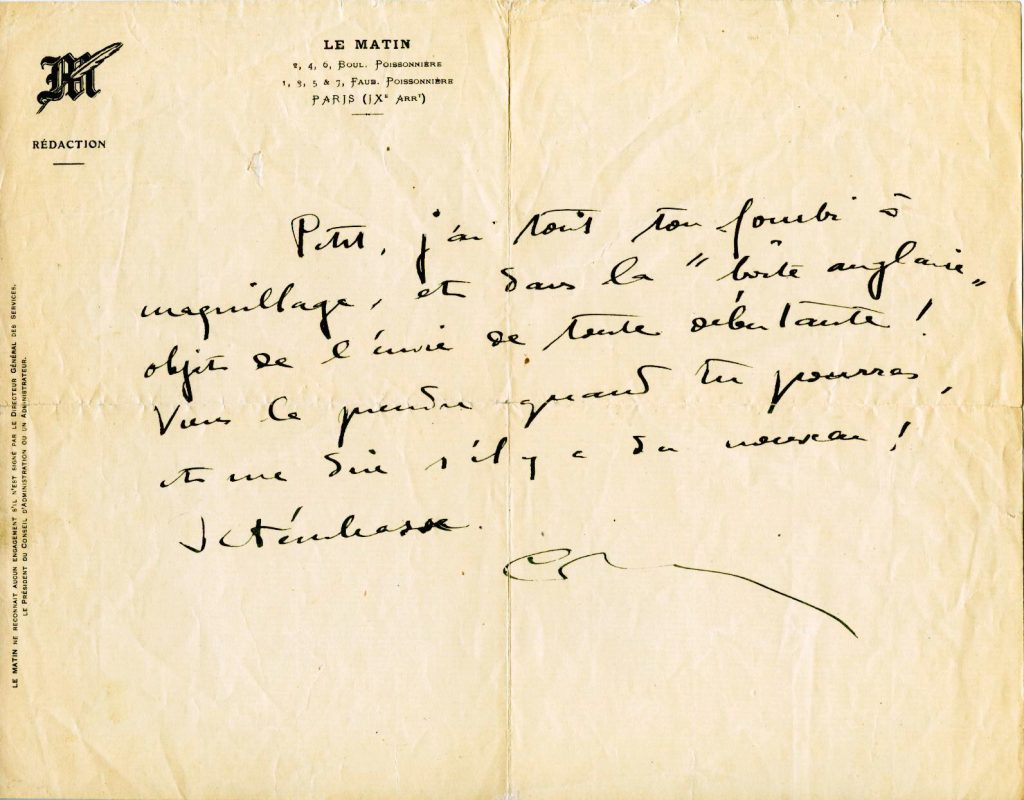 LE MATIN
2, 4, 6, BOUL. POISSONNIÈRE
1, 3, 5 & 7, FAUB. POISSONNIÈRE
PARIS (IXE ARRT)
RÉDACTION
Petit, j'ai tout ton fourbi à
maquillage, et dans la "boîte anglaise"
objet de l'envie de toute débutante !
Viens le prendre quand tu pourras,
et me dire s'il y a du nouveau !
Je t'embrasse.
LE MATIN NE RECONNAIT AUCUN ENGAGEMENT S'IL N'EST SIGNÉ PAR LE DIRECTEUR GÉNÉRAL DES SERVICES,
LE PRÉSIDENT DU CONSEIL D'ADMINISTRATION OU UN ADMINISTRATEUR.